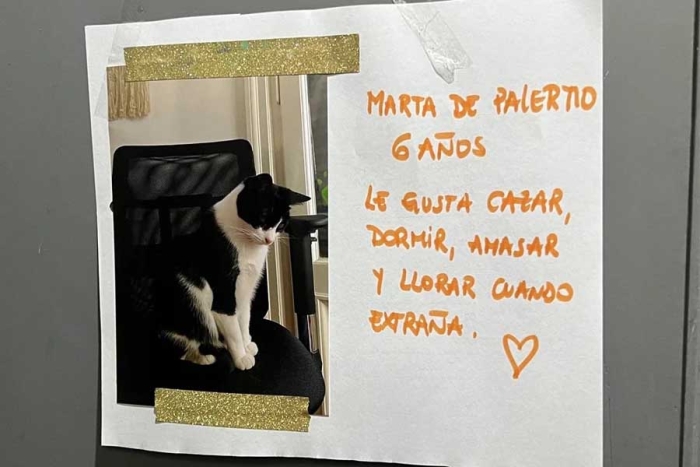 MARTA DE PALERMO
6 AÑOS
LE GUSTA CAZAR,
DORMIR, AMASAR
Y LLORAR CUANDO
EXTRAÑA.